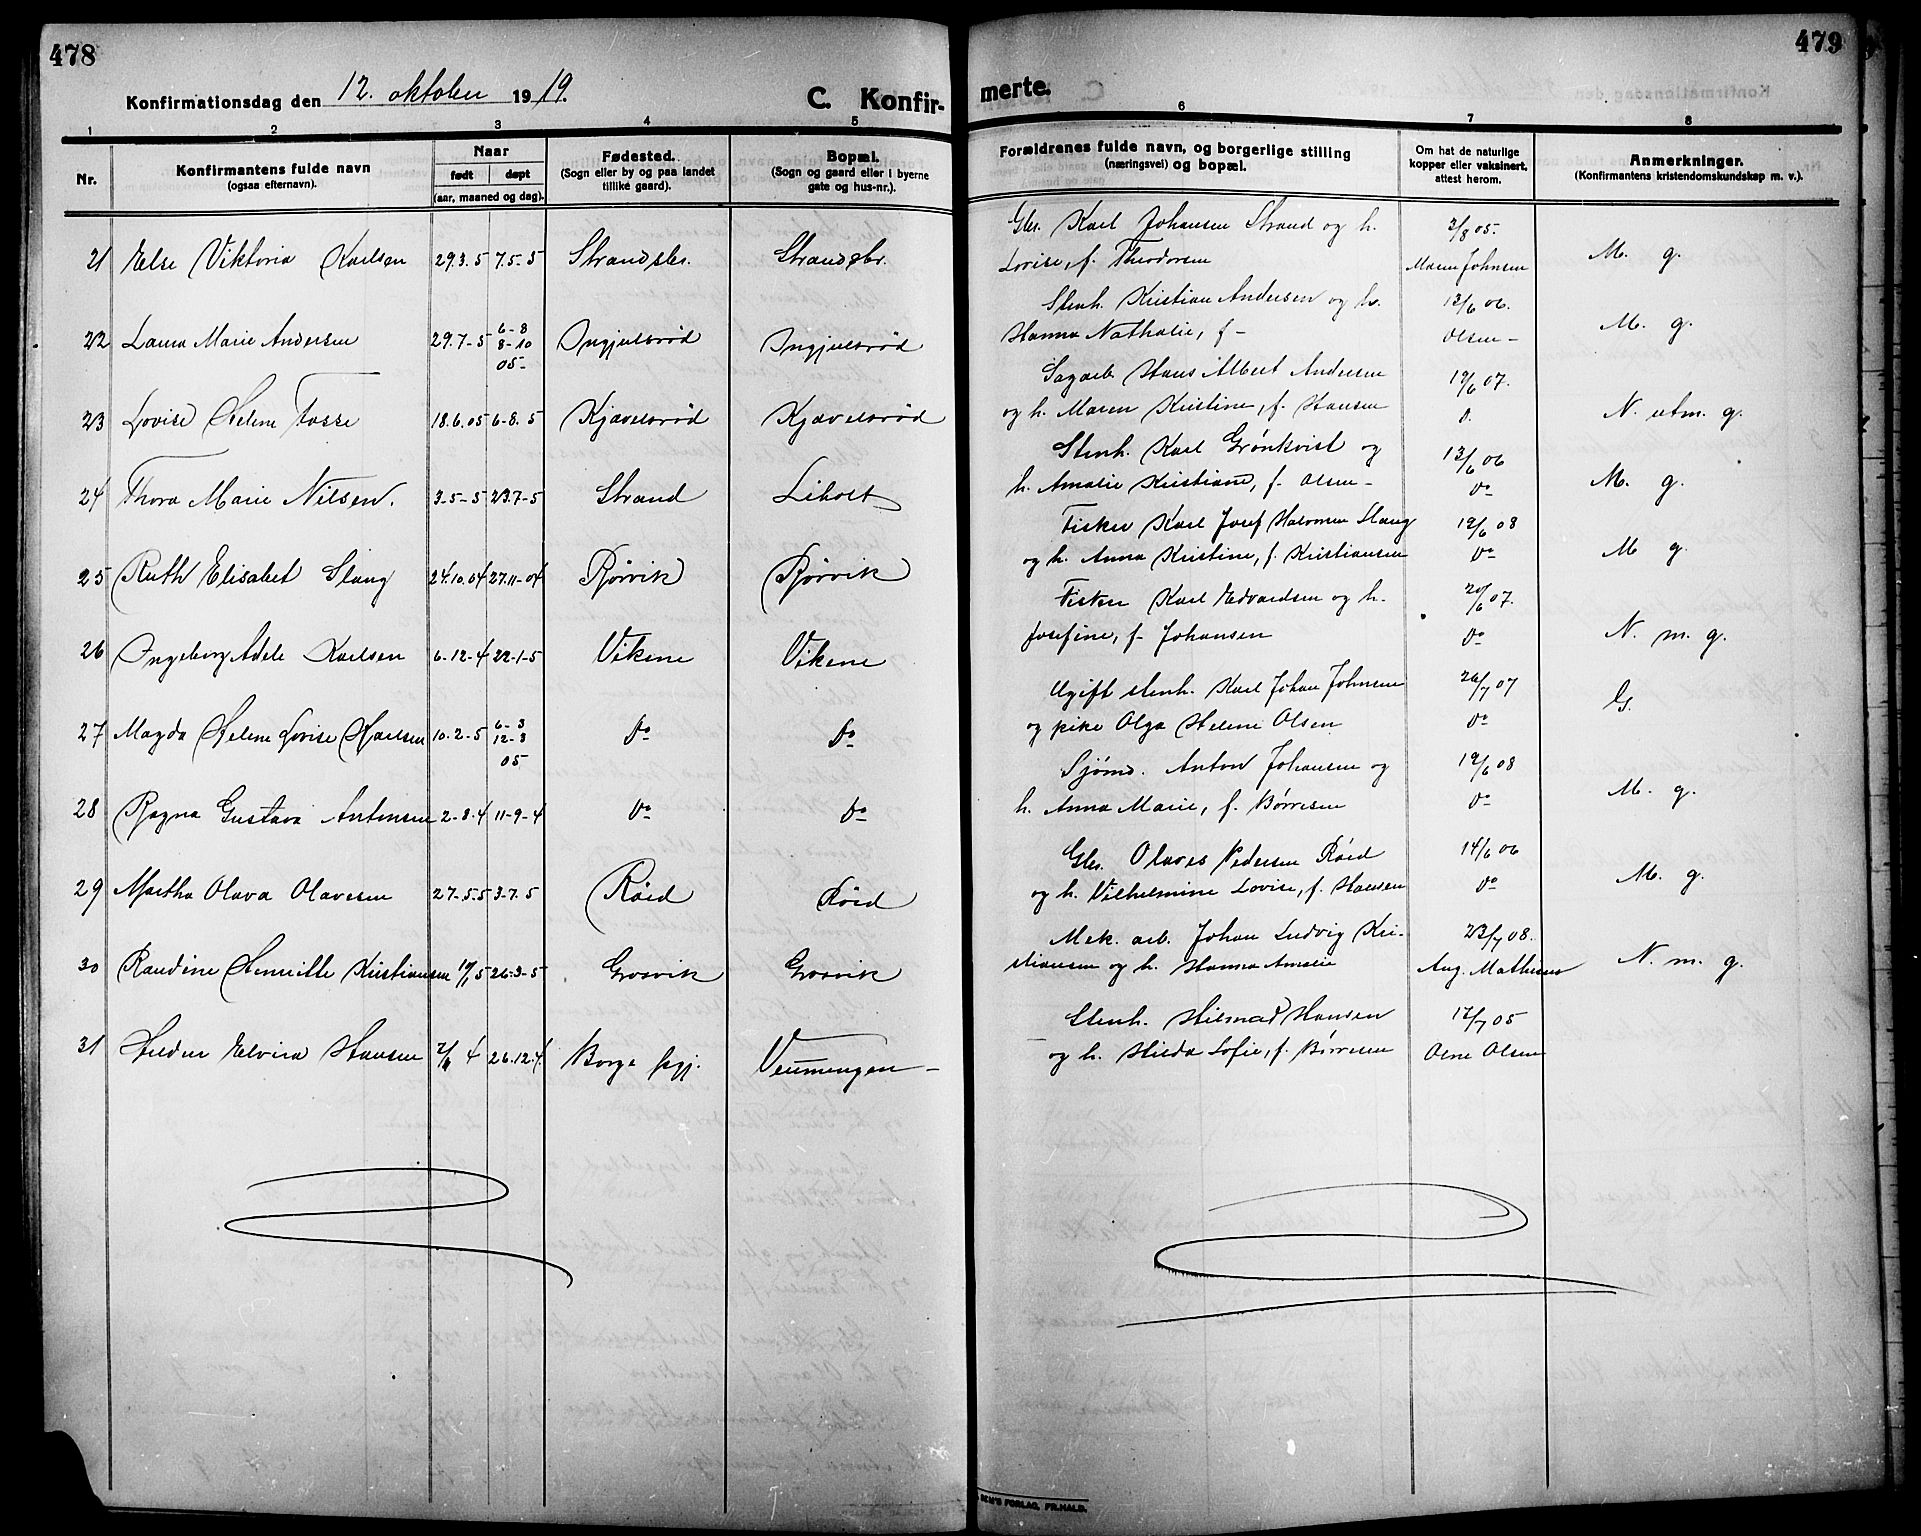 478
Konfirmationsdag den 12. oktober 1919.
C. Konfir-
1 2 3 4 5
Nr.
Konfirmantens fulde navn
(ogsaa efternavn).
Naar
født døpt
(aar, maaned og dag).
Fødested.
(Sogn eller by og paa landet
tillike gaard).
Bopæl.
(Sogn og gaard eller i byerne
gate og hus-nr.).
21 Else Viktoria Karlsen 29.3.5 7.5-5 Strandsbr. Strandsbr.
22 Laura Marie Andersen 29.7-5 6-8 8-10 05- Ingjulsrød Ingjulsrød
23 Lovise Helene Fosse 18.6.05 6-8.5 Kjavelsrød Kjavelsrød
24 Thora Marie Nilsen. 3-5-5 23.7-5 Strand Liholt
25 Ruth Elisabet Slang 24.10.04 27.11-04 Rørvik Rørvik
26 Ingeborg Adele Karlsen 6-12-4 22-1-5 Vikene Vikene
27 Magda Helene Lovise Karlsen 10.2-5 6-3 12-3 05 Do Do
28 Ragna Gustava Antonsen 2-8.4 11-9-4 Do Do
29 Martha Olava Olavesen 27-5.5 3-7.5 Røed Røed
30 Randine Henriette Kristiansen 19/1 5 26-3-5 Grosvik Grosvik
31 Hildur Elvira Hansen 4 26.12.4. Borge pgj. Veumengen-
479
merte.
6 7 8
Forældrenes fulde navn, og borgerlige stilling
(næringsvei) og bopæl.
Om hat de naturlige
kopper eller vaksinert,
attest herom.
Anmerkninger.
(Konfirmantens kristendomskundskap m. v.).
Gbr. Karl Johansen Strand og h. 2/8 05.
Lovise, f. Theodorsen Maren Johnsen M. g.
Stenh. Kristian Andersen og h. 13/6 06.
Hanna Nathalie, f- Olsen- M. g.
Sagarb. Hans Albert Andersen 19/6 07.
og h. Maren Kristine, f. Hansen D. N. utm. g.
Stenh. Karl Grønkvist og 13/6 06
h. Amalie Kristiane, f- Olsen- Do M. g.
Fisker Karl Josef Halvorsen Slang 19/6 08
og h. Anna Kristine, f. Kristiansen Do M g.
Fisker Karl Edvardsen og h. 20/6 07.
Josefine, f- Johansen Do N. m. g.
Ugift stenh. Karl Johan Johnsen 26/7 07
og pike Olga Helene Olsen Do G.
Sjømd. Anton Johansen og 19/6 08
h. Anna Marie, f. Børresen Do M. g.
Gbr. Olaves Pedersen Røed 14/6 06
og h. Vilhelmine Lovise, f. Hansen Do M. g.
Mek. arb. Johan Ludvig Kri-
stiansen og h. Hanna Amalie 23/7 08. Aug. Mathisen N. m. g.
Stenh. Hilmar Hansen 17/7 05
og h. Hilda Sofie, f. Børresen Arne Olsen
FORLAG, FR.HALD.